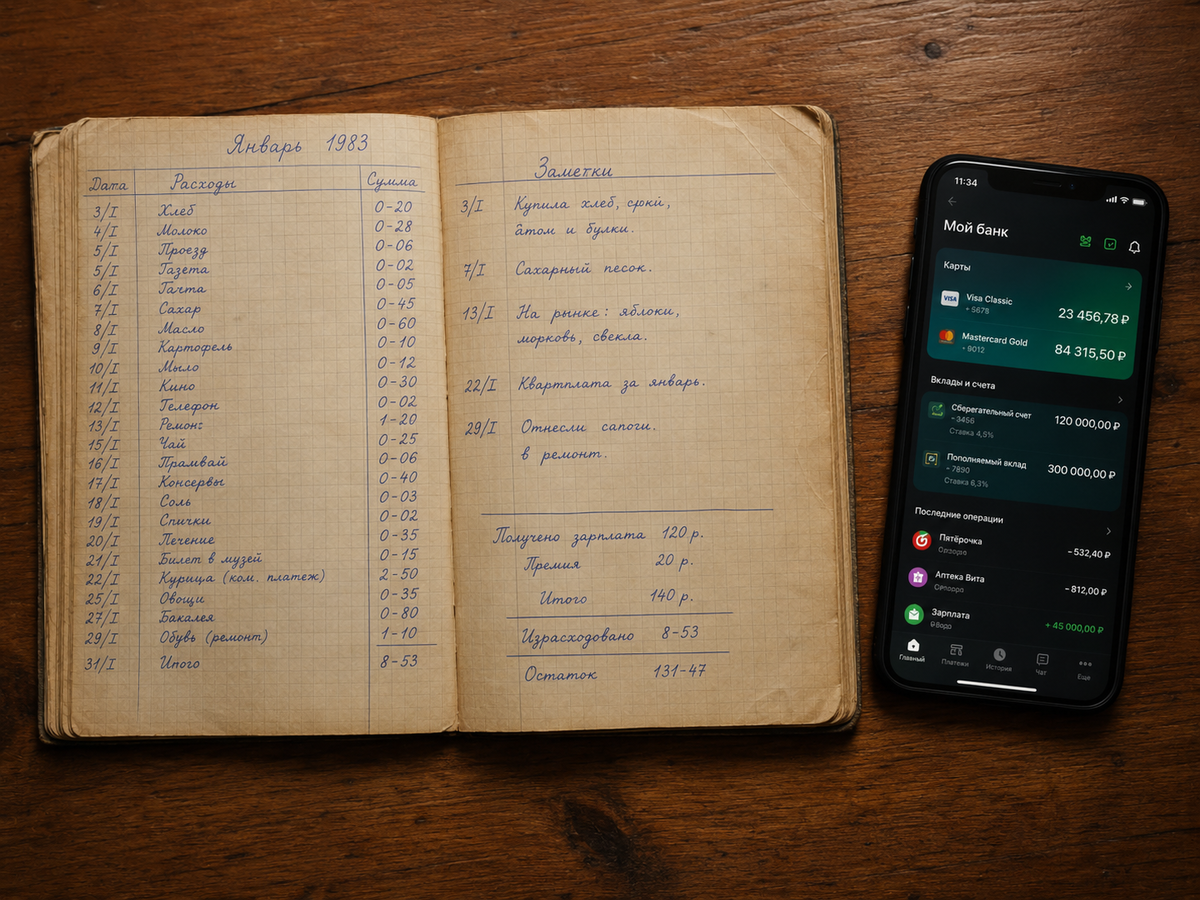 Январь 1983
Дата Расходы Сумма
3/I Хлеб 0-20
4/I Молоко 0-28
5/I Проезд 0-06
5/I Газета 0-02
6/I 0-05
7/I Сахар 0-45
8/I Масло 0-60
9/I Картофель 0-10
10/I Мыло 0-12
11/I Кино 0-30
12/I Телефон 0-02
13/I 1-20
15/I Чай 0-25
16/I 0-06
17/I Консервы 0-40
18/I Соль 0-03
19/I Спички 0-02
20/I Печение 0-35
21/I Билет в музей 0-15
22/I Курица (ком. платеж) 2-50
25/I Овощи 0-35
27/I Бакалея 0-80
29/I Обувь (ремонт) 1-10
31/I Итого 8-53
Заметки
3/I Купила хлеб,
и булки.
7/I Сахарный песок.
13/I На рынке: яблоки,
морковь, свекла.
22/I Квартплата за январь.
29/I Отнесли сапоги.
в ремонт.
Получено зарплата 120 р.
Премия 20 р.
Итого 140 р.
Израсходовано 8-53
Остаток 131-47
11:34
Мой банк
Карты
VISA Visa Classic 23 456,78 ₽
5678
Mastercard Gold 84 315,50 ₽
9012
Вклады и счета
Сберегательный счет 120 000,00 ₽
3456
Ставка 4,5%
Пополняемый вклад 300 000,00 ₽
7890
Ставка 6,3%
Последние операции
Пятёрочка -532,40 ₽
Аптека Вита -812,00 ₽
Зарплата +45 000,00 ₽
Главный Платежи История Чат Еще